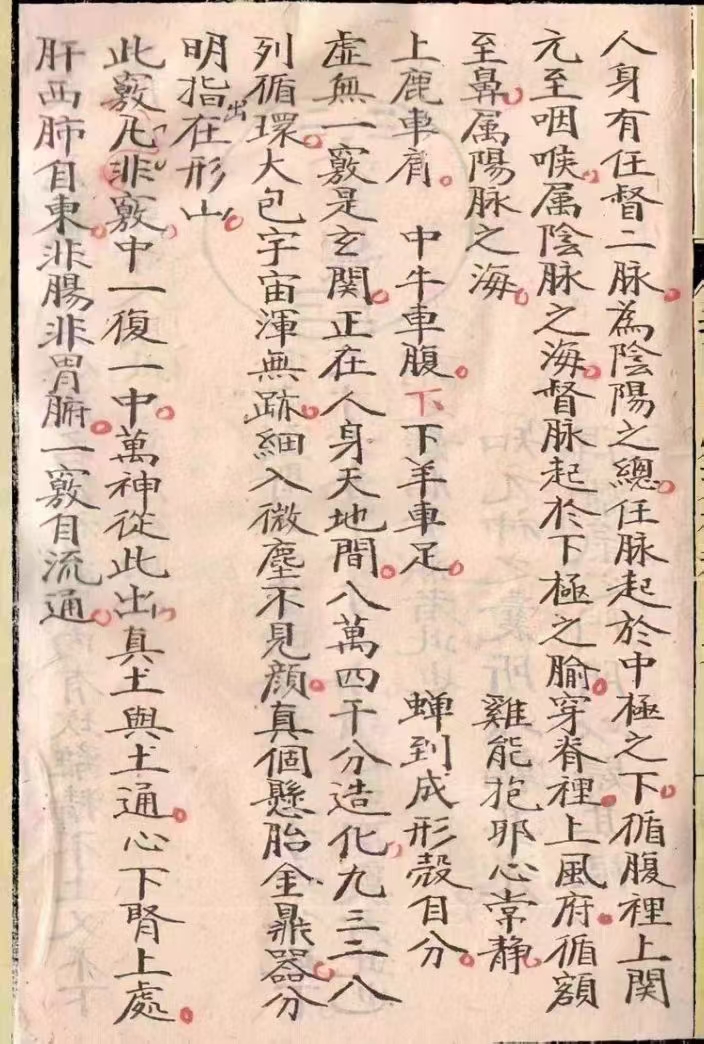 人身有任督二脉。為陰陽之總。任脉起於中極之下。循腹裡上関
元至咽喉。属陰脉之海。督脉起於下極之腧。穿脊裡。上風府。循額
至鼻。属陽脉之海。 雞能抱耶心常静。
上鹿車肩。 中牛車腹。下下羊車足。 蝉到成形殼自分。
虛無一竅是玄関。正在人身天地間。八萬四千分造化。九三二八
列循環。大包宇宙渾無跡。細入微塵不見顔。真個懸胎金鼎器。分
明指出在形山。
此竅凡非竅。中一復一中。萬神從此出。真土與土通。心下腎上處。
肝西肺自東。非腸非胃腑。一竅自流通。